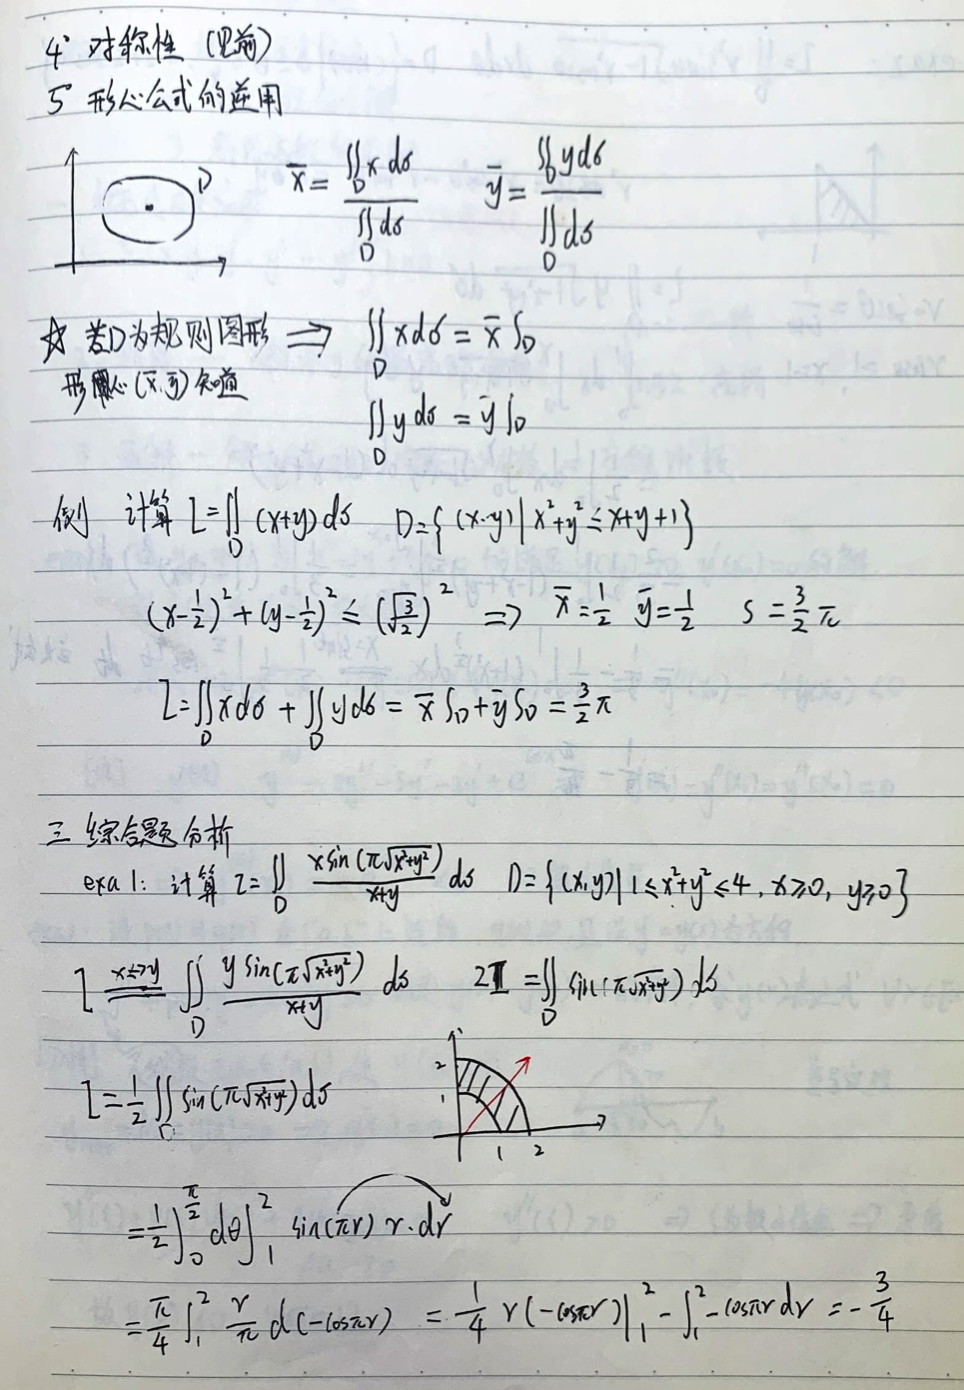 4° 对称性 (见前)
5° 形心公式的逆用
D x̄ = ∬_D x dσ / ∬_D dσ ȳ = ∬_D y dσ / ∬_D dσ
☆ 若D为规则图形 ⟹ ∬_D x dσ = x̄ S_D
形心 (x̄, ȳ) 知道
∬_D y dσ = ȳ S_D
例 计算 I = ∬_D (x+y) dσ D = { (x,y) | x²+y² ≤ x+y+1 }
(x-1/2)² + (y-1/2)² ≤ (√(3/2))² ⟹ x̄ = 1/2 ȳ = 1/2 S = 3/2 π
I = ∬_D x dσ + ∬_D y dσ = x̄ S_D + ȳ S_D = 3/2 π
三 综合题分析
exa 1: 计算 I = ∬_D x sin(π√(x²+y²)) / (x+y) dσ D = { (x,y) | 1 ≤ x²+y² ≤ 4, x≥0, y≥0 }
I =(x↔y)= ∬_D y sin(π√(x²+y²)) / (x+y) dσ 2I = ∬_D sin(π√(x²+y²)) dσ
I = 1/2 ∬_D sin(π√(x²+y²)) dσ
2
1
1 2
= 1/2 ∫_0^{π/2} dθ ∫_1^2 sin(πr) r·dr
= π/4 ∫_1^2 r/π d(-cosπr) = 1/4 r(-cosπr)|_1^2 - ∫_1^2 -cosπr dr = -3/4